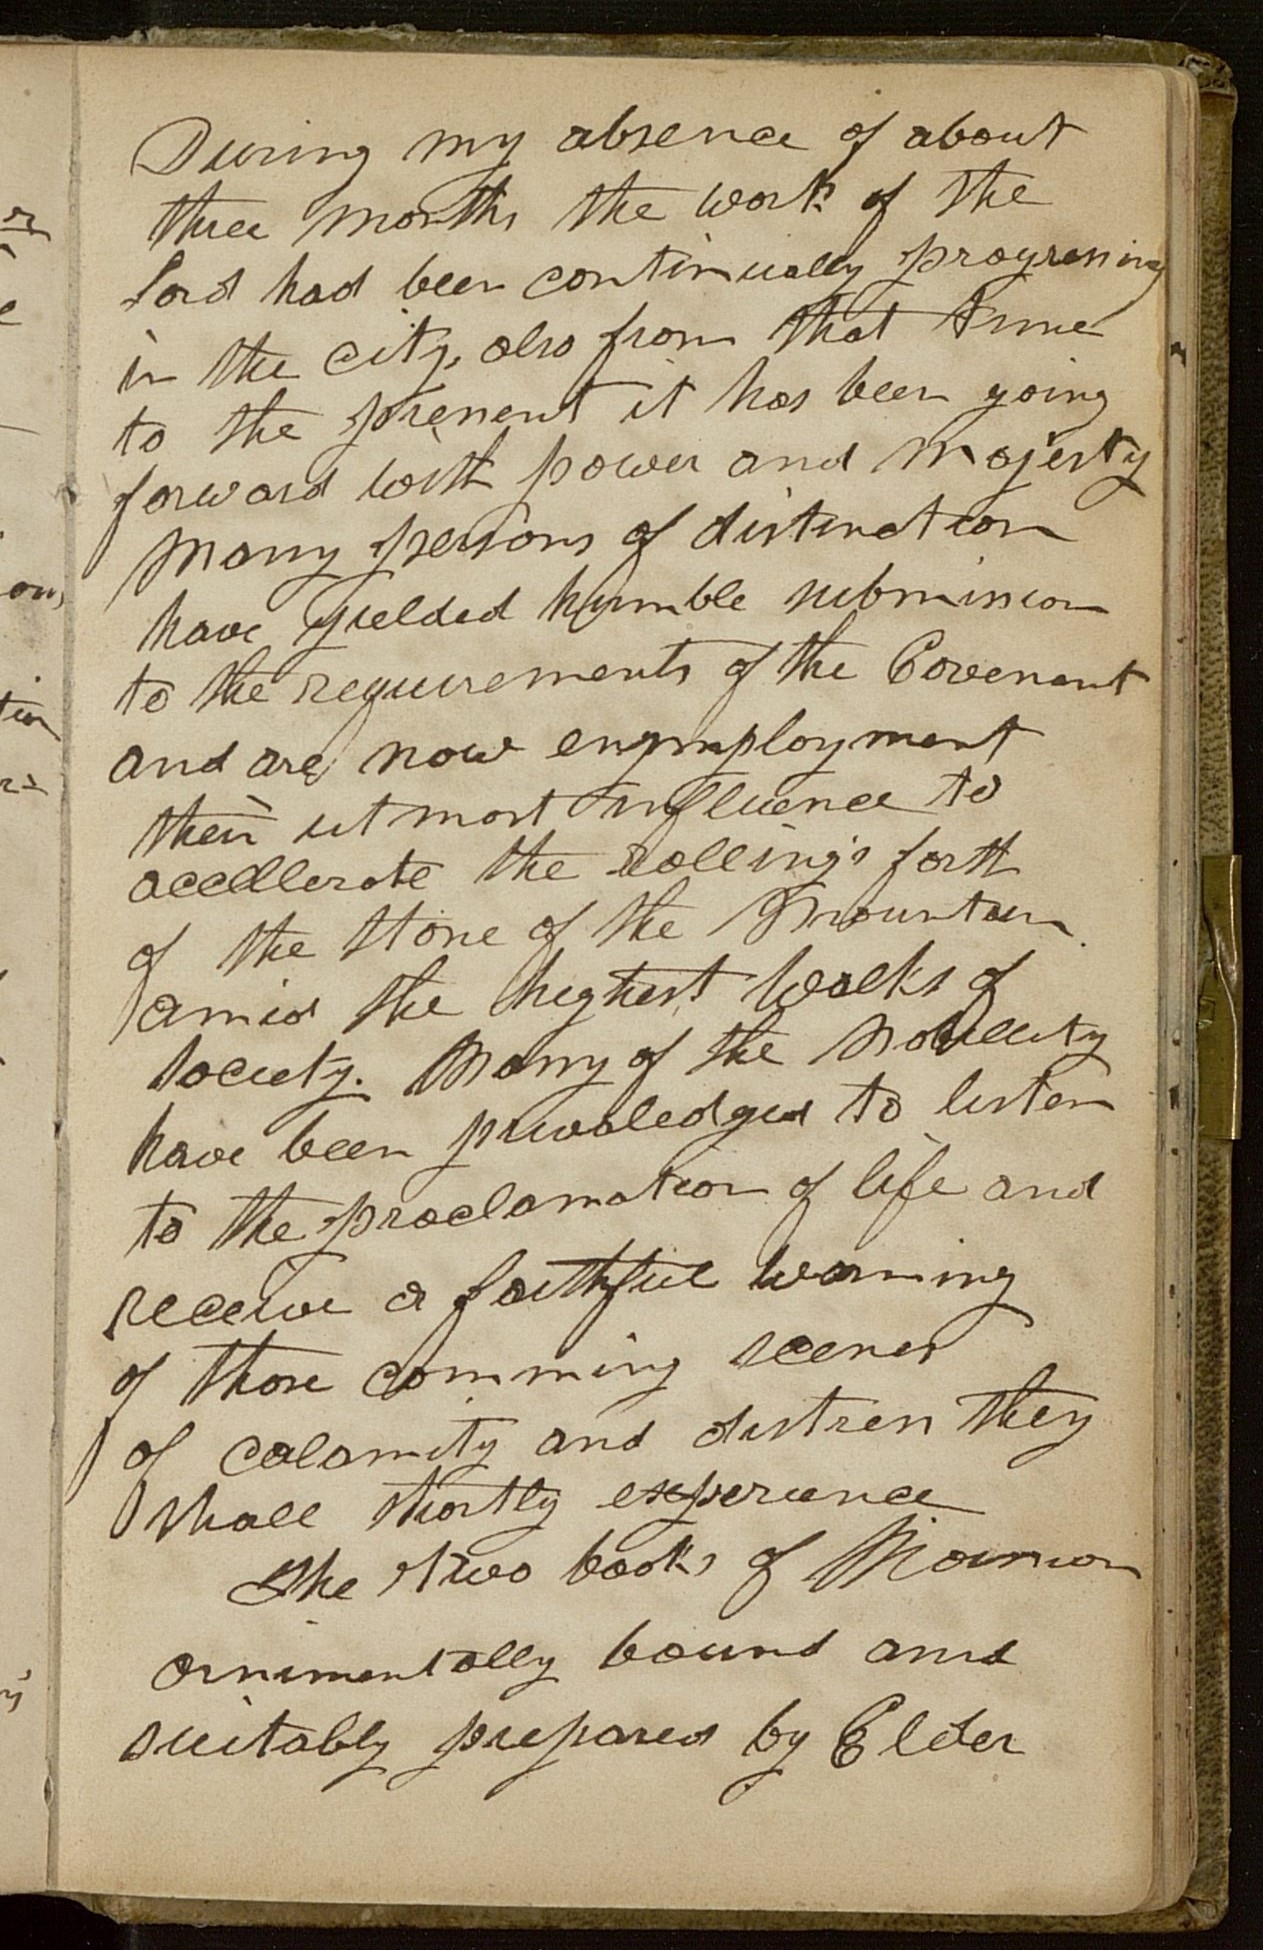 During my absence of about
three months the work of the
Lord had been continually progressing
in the city, also from that time
to the present it has been going
forward with power and majesty
Many persons of distinction
have yielded humble submission
to the requirements of the Covenant
and are now enymployment
their utmost influence to
accellerate the rolling's forth
of the Stone of the Mountain
amid the highest walks of
society. Many of the Nobility
have been privaledged to listen
to the proclamation of life and
receive a faithful warning
of those comming scenes
of calamity and distress they
shall shortly experience
The two books of Mormon
ornimentally bound and
suitably prepared by Elder